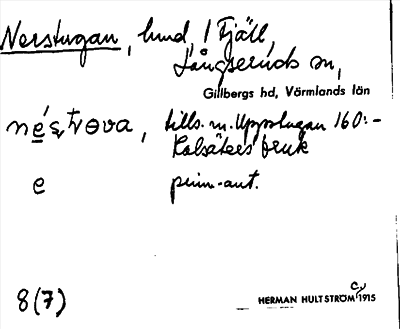 Nerstugan, hmd, 1 Fjäll,
Långseruds sn,
Gillbergs hd, Värmlands län
tills. m. Uppstugan 160:-
Kolsäters bruk
e prim-aut.
8(7)
HERMAN HULTSTRÖM 1915